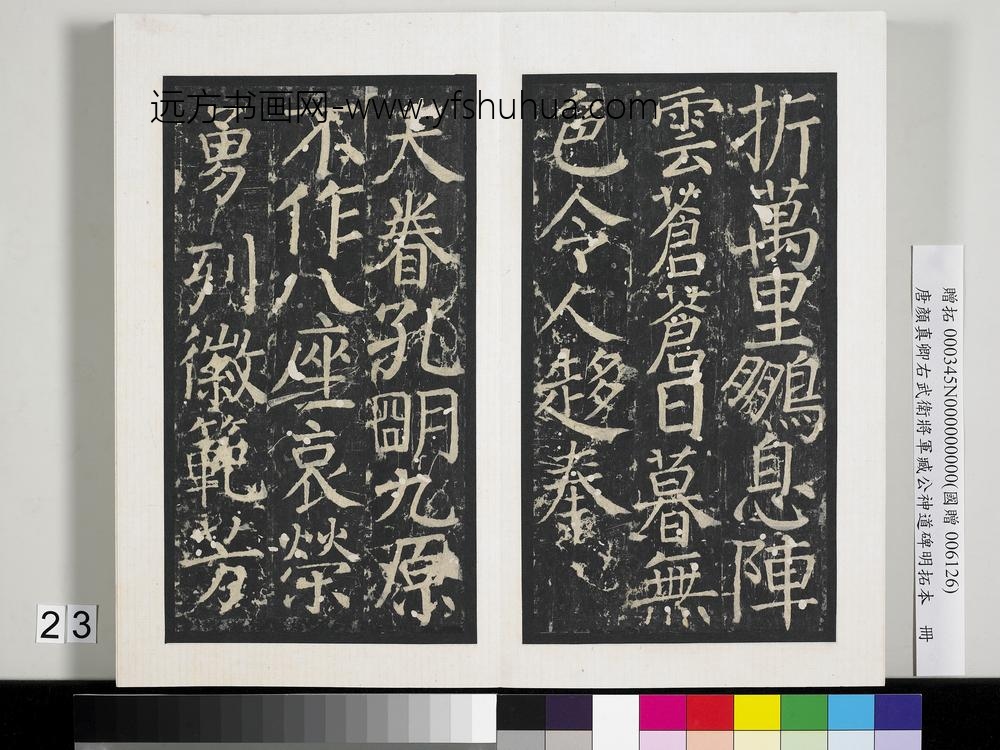 远方书画网-www.yfshuhua.com
折萬里鵬息陣
雲蒼蒼日暮無
色令人趍
天眷孔明九原
不作八座哀榮
勇列徽範芳
贈拓 000345N000000000(國贈 006126)
唐顏真卿右武衛將軍臧公神道碑明拓本 冊
23